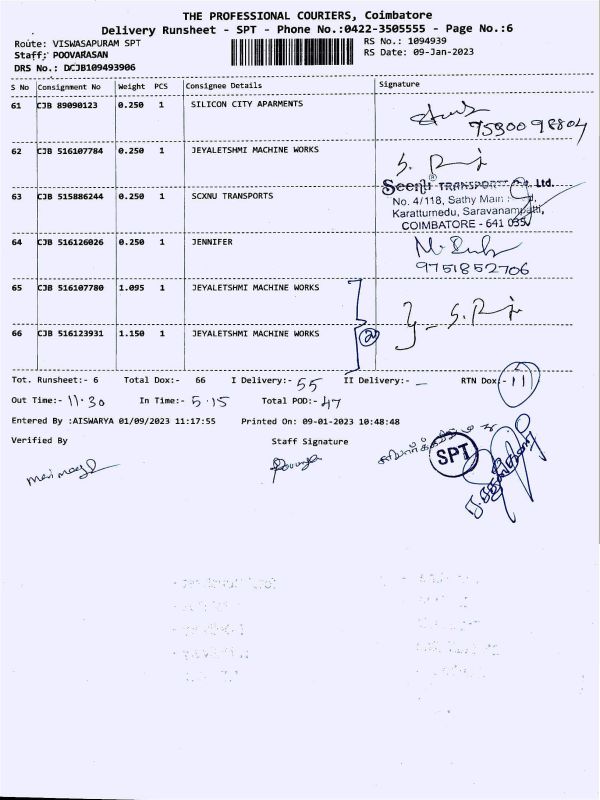 THE PROFESSIONAL COURIERS, Coimbatore
Delivery Runsheet - SPT - Phone No.:0422-3505555 - Page No.:6
Route: VISWASAPURAM SPT RS No.: 1094939
Staff: POOVARASAN RS Date: 09-Jan-2023
DRS No.: DCJB109493906
S No Consignment No Weight PCS Consignee Details Signature
61 CJB 89090123 0.250 1 SILICON CITY APARMENTS
62 CJB 516107784 0.250 1 JEYALETSHMI MACHINE WORKS
63 CJB 515886244 0.250 1 SCXNU TRANSPORTS
No. 4/118, Sathy Main
Karattumedu, Saravanampatti,
COIMBATORE - 641 035
64 CJB 516126026 0.250 1 JENNIFER
9751852706
65 CJB 516107780 1.095 1 JEYALETSHMI MACHINE WORKS
66 CJB 516123931 1.150 1 JEYALETSHMI MACHINE WORKS
2
Tot. Runsheet:- 6 Total Dox:- 66 I Delivery:- 55 II Delivery:- — RTN Dox:- 11
Out Time:- 11.30 In Time:- 5.15 Total POD:- 47
Entered By :AISWARYA 01/09/2023 11:17:55 Printed On: 09-01-2023 10:48:48
Verified By Staff Signature
SPT